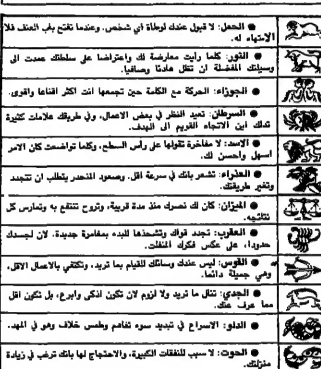 ● الحمل: لا قبول عندك لوطأة أي شخص. وعندما تفتح باب العنف فلا
انتهاء له.
● الثور: كلما رأيت معارضة لك واعتراضا على سلطتك عمدت الى
وسيلتك المفضلة ان تظل هادئا وصافيا.
● الجوزاء: الحركة مع الكلمة حين تجمعها انت اكثر اقناعا واقوى.
● السرطان: تعيد النظر في بعض الاعمال، وفي طريقك علامات كثيرة
تدلك اين الاتجاه القويم الى الهدف.
● الاسد: لا مفاخرة تقولها على رأس السطح، وكلما تواضعت كان الامر
اسهل واحسن لك.
● العذراء: تشعر بانك في سرعة اقل. وصعود المنحدر يتطلب ان تتجدد
وتغير طريقتك.
● الميزان: كان لك نصرك منذ مدة قريبة، وتروح تنتفع به وتمارس كل
نتائجه.
● العقرب: تجدد قواك وتشحذها للبدء بمغامرة جديدة. لان لجسدك
حدودا، على عكس فكرك المنفلت.
● القوس: ليس عندك وسائلك للقيام بما تريد، وتكتفي بالاعمال الاقل،
وهي جميلة دائما.
● الجدي: تنال ما تريد ولا لزوم لان تكون اذكى وابرع، بل تكون اقل
مما عرف عنك.
● الدلو: الاسراع في تبديد سوء تفاهم وطمس خلاف وهو في المهد.
● الحوت: لا سبب للنفقات الكبيرة، والاحتجاج لها بانك ترغب في زيادة
منزلتك.